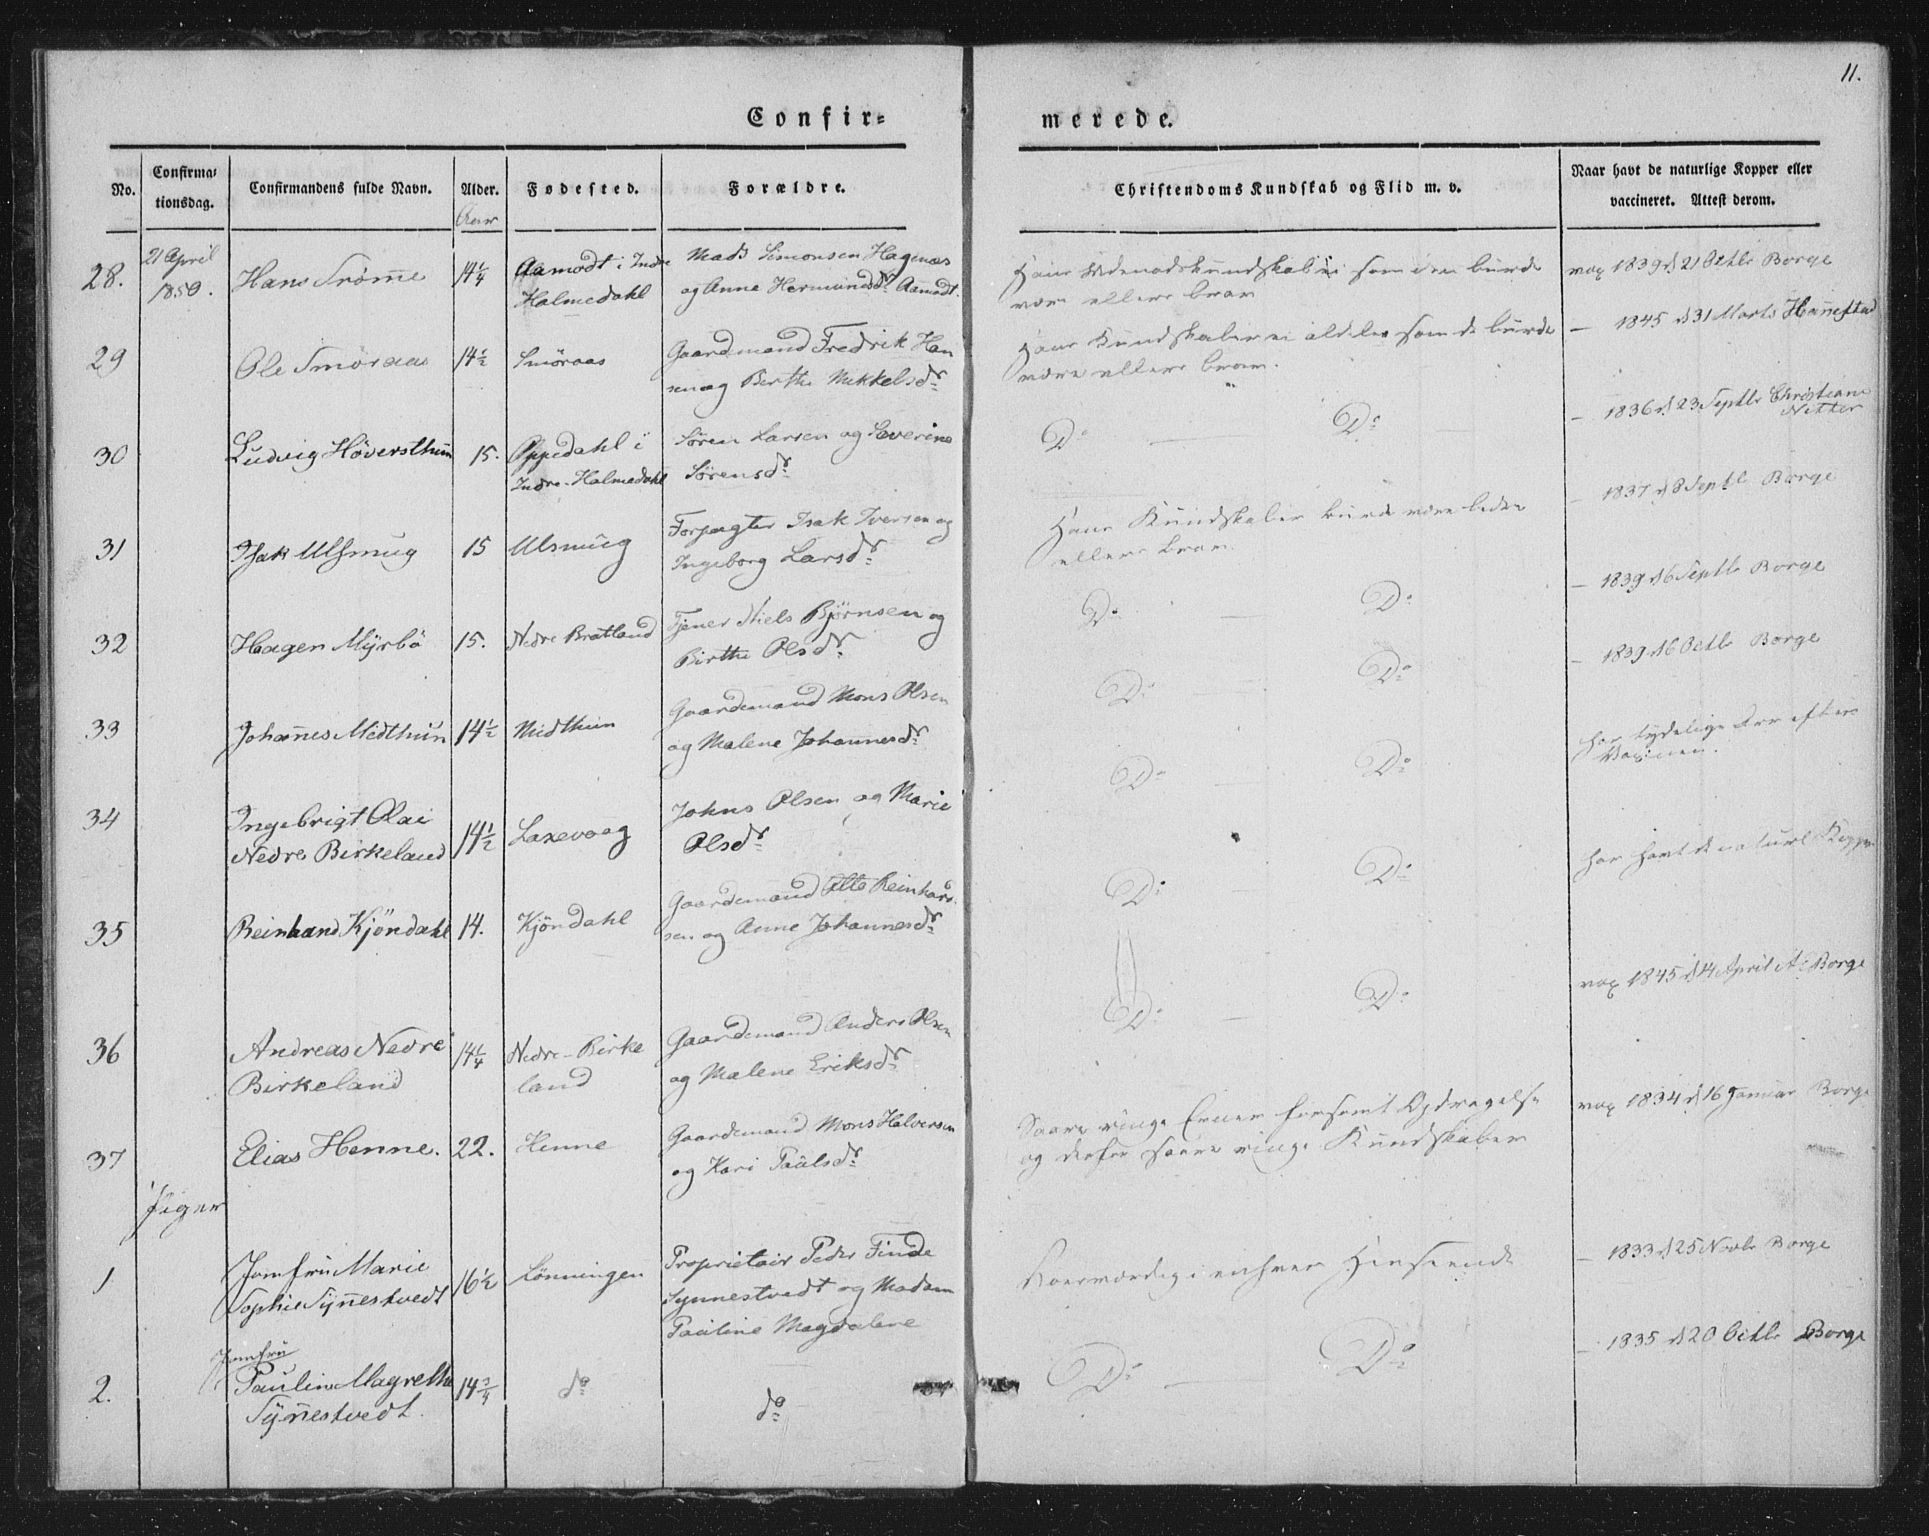 11.
Confir=
merede.
No.
Confirma-
tionsdag.
Confirmandens fulde Navn.
Alder.
Aar
Fødested.
Forældre.
Christendoms Kundskab og Flid m. v.
Naar havt de naturlige Kopper eller
vaccineret. Attest derom.
28.
21 April
1850.
Hans Trømme
14 1/4
Aamodt i Indre
Halmedahl
Mads Simonsen Hagenæs
og Anne Hermundsdr Aamodt.
ei som den burde
være ellers brav
vax 1839 d 21 Octbr Borge
29
Ole Smöraas
14 1/2
Smöraas
Gaardemand Fredrik Han
sen og Birthe Mikkelsdr
Hans Kundskaber ei aldeles som de burde
være ellers brav.
— 1845 d 31 Marts Hannestad
30
Ludvig Höversthun
15.
Oppedahl i
Indre-Halmedahl
Sören Larsen og Severine
Sörensdr
Do — Do —
— 1836 d 23 Septbr Christiane
Nitter
31
Isak Ulsmug
15
Ulsmug
Forpagter Isak Iversen og
Ingeborg Larsdr
Hans Kundskaber burde være bedre
ellers brav.
— 1837 d 8 Septbr Borge
32
Hagen Myrbö
15.
Nedre Bratland
Tjener Niels Bjørnsen og
Birthe Olsdr
Do — Do
— 1839 d 6 Septbr Borge
33
Johannes Midthun
14 1/2
Midthun
Gaardemand Mons Olsen
og Malene Johannesdr
Do — Do
— 1839 d 16 Octbr Borge
34
Ingebrigt Olai
Nedre Birkeland
14 1/2
Laxevaag
Johns Olsen og Marie
Olsdr
Do — Do
har tydelige Ar efter
Vaxinen.
35
Reinhard Kjöndahl
14.
Kjöndahl
Gaardemand Otto Reinhard-
sen og Anne Johannesdr
Do — Do
har havt de naturl Kopper
36
Andreas Nedre
Birkeland
14 1/4
Nedre-Birke
land
Gaardemand Anders Olsen
og Malene Eriksdr
Do — Do
vax 1845 d 14 April A. Borge
37
Elias Henne.
22.
Henne
Gaardemand Mons Halversen
og Kari Paulsdr
Saare ringe Evner forsømt Opdragelse
og derfor saare ringe Kundskaber
vax 1834 d 16 Januar Borge
Piger
1
Jomfru Marie
Sophie Synnestvedt
16 1/2
Lönningen
Proprietair Peder Finde
Synnestvedt og Madam
Pauline Magdalene
i enhver Henseende
— 1833 d 25 Novbr Borge
2.
Jomfru
Pauline Magrethe
Synnestvedt.
14 3/4
do
do
Do — Do
— 1835 d 20 Octbr Borge